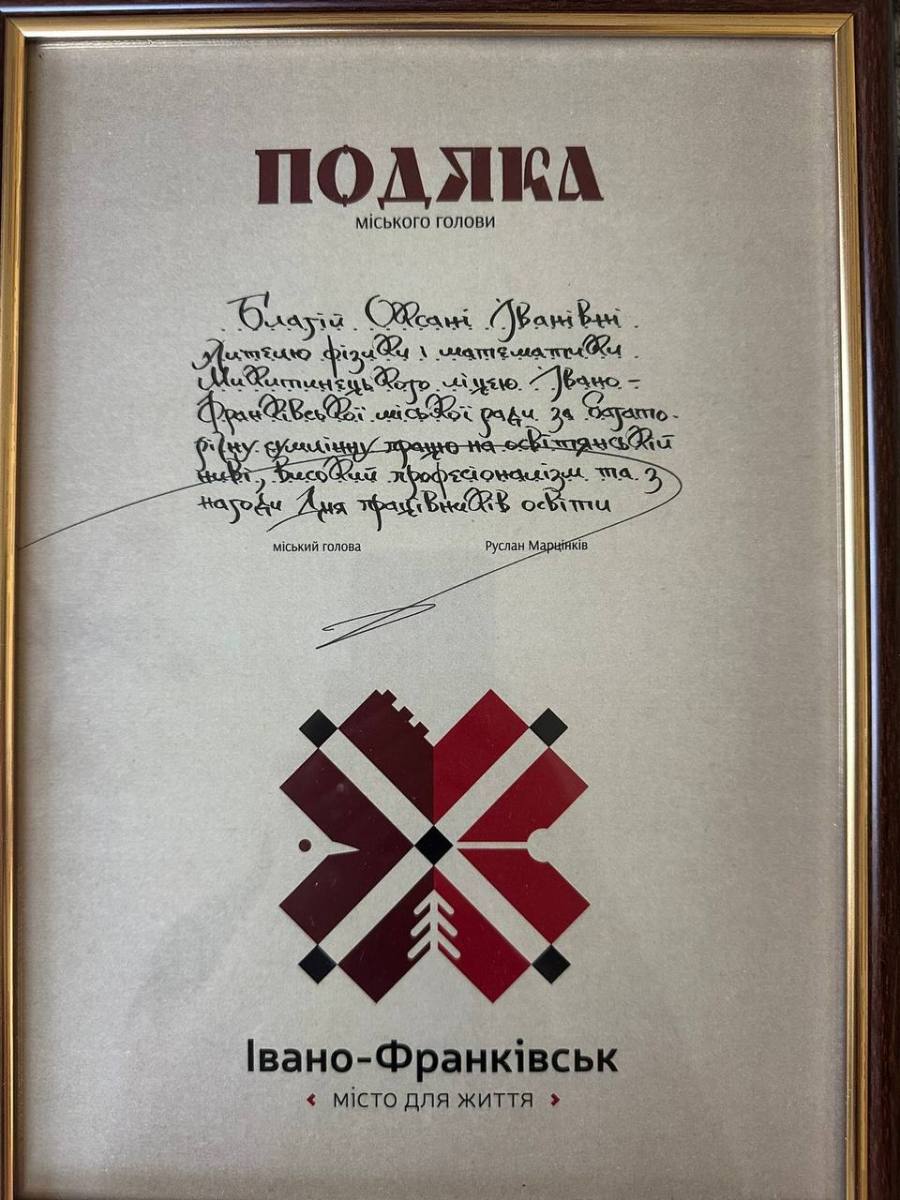 ПОДЯКА
міського голови
Благій Оксані Іванівні
вчителю фізики і математики
Микитинецького ліцею Івано-
Франківської міської ради за багато-
річну сумлінну працю на освітянській
ниві, високий професіоналізм та з
нагоди Дня працівників освіти
міський голова Руслан Марцінків
Івано-Франківськ
‹ місто для життя ›